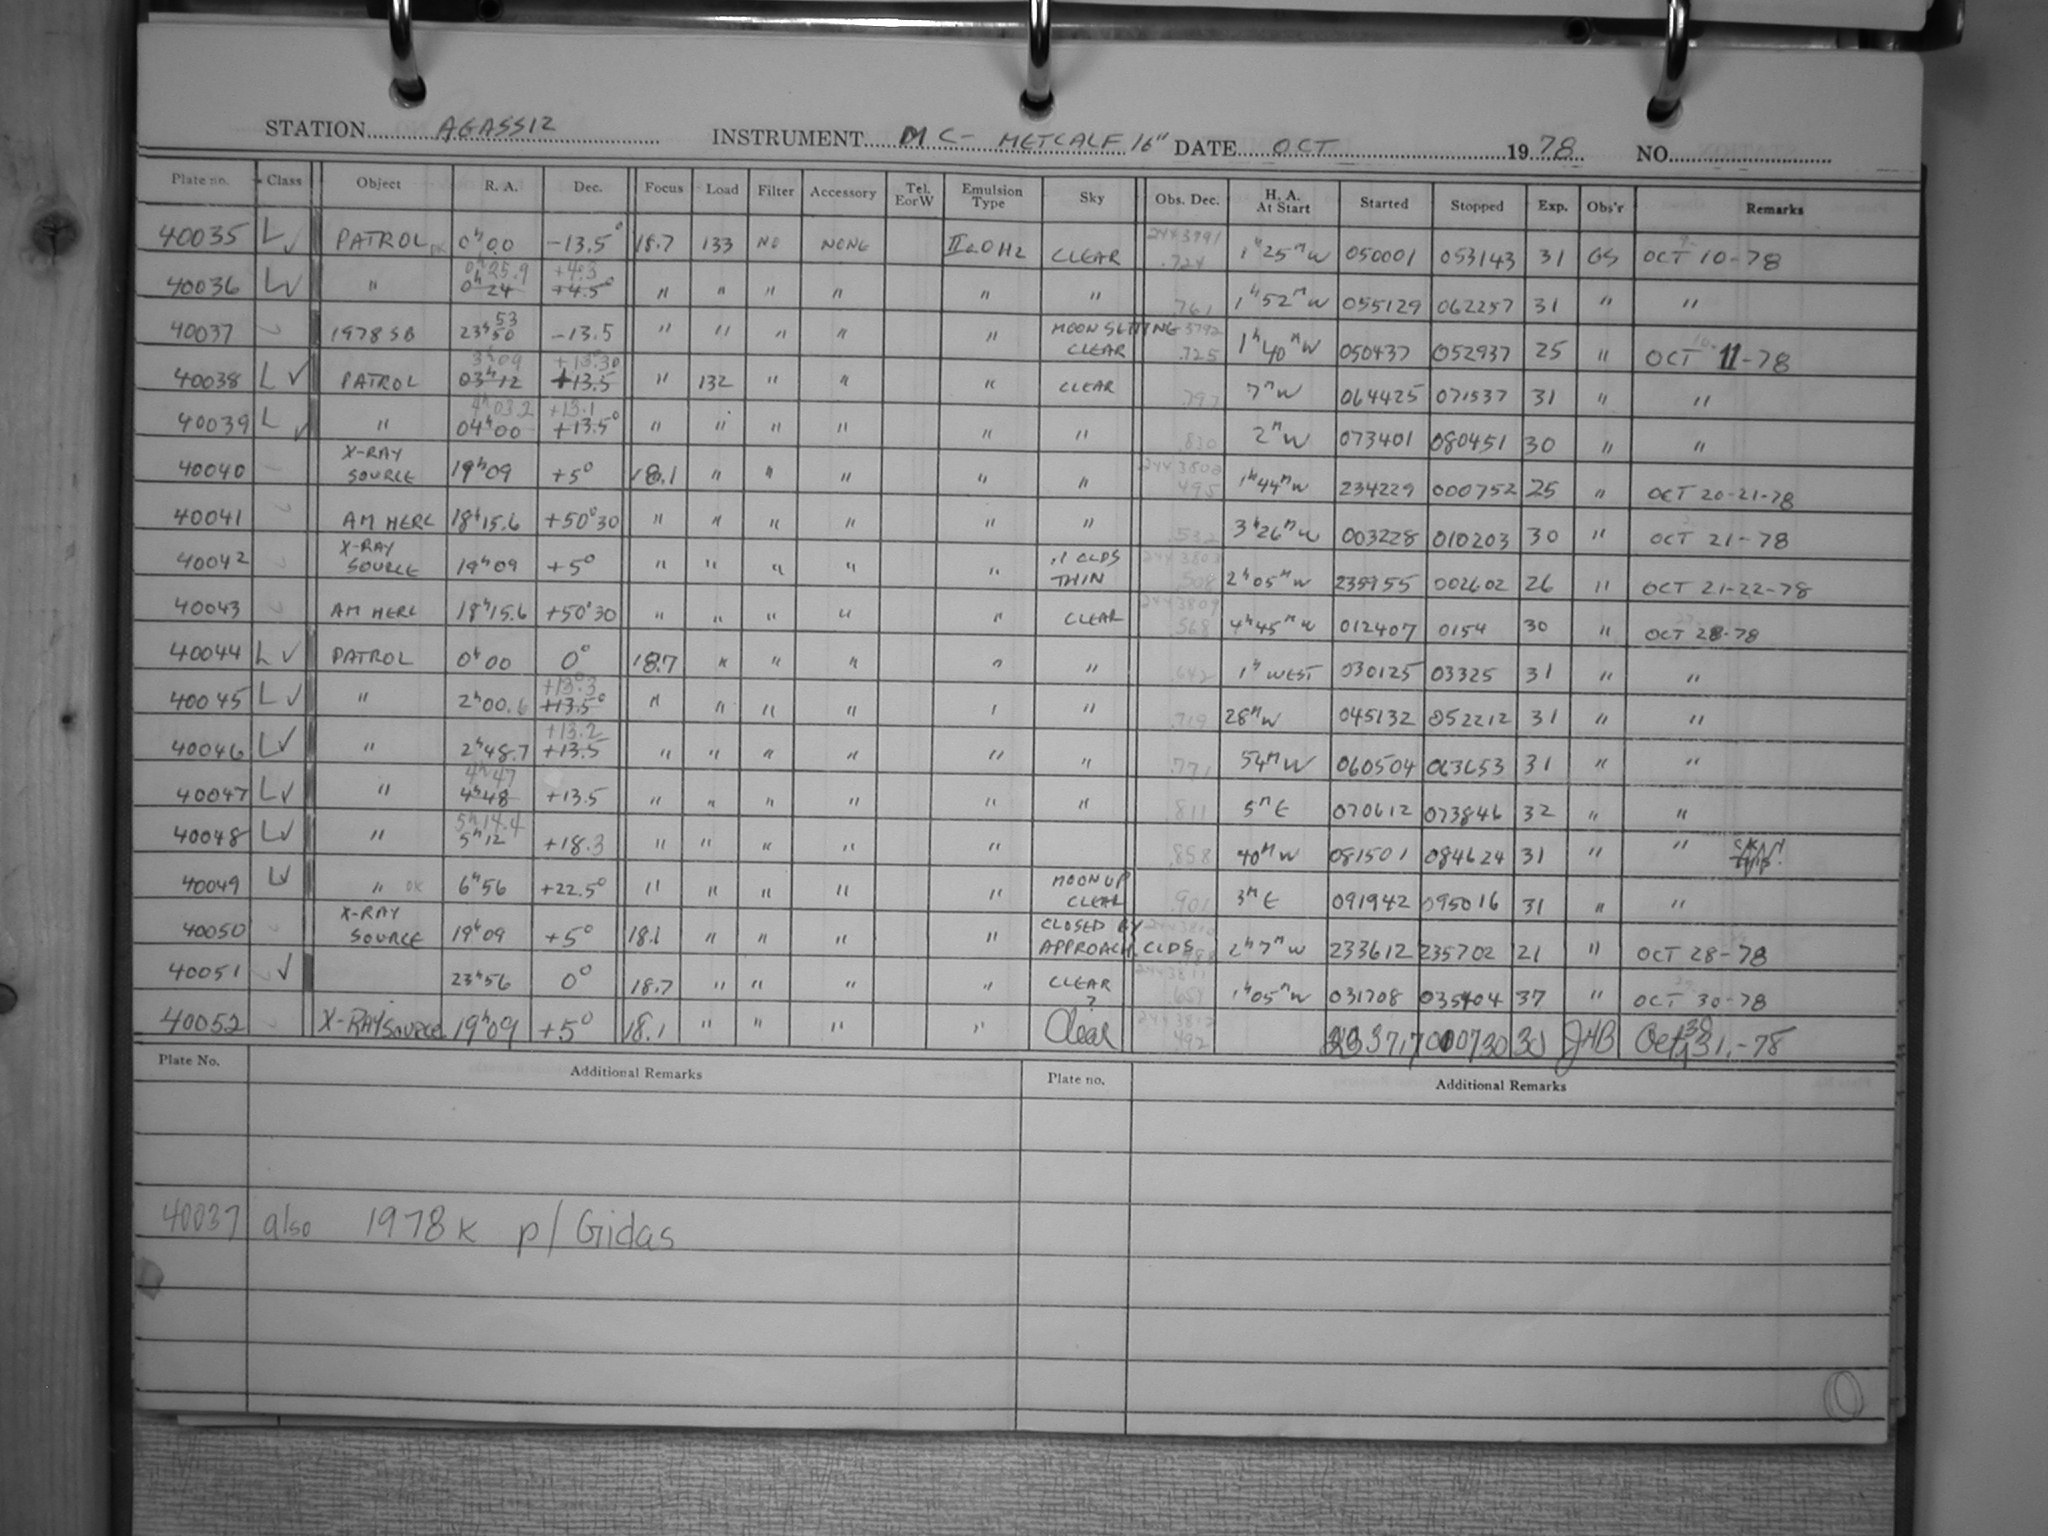 STATION AGASSIZ INSTRUMENT MC- METCALF 16" DATE OCT 1978 NO.
Plate no. Class Object R. A. Dec. Focus Load Filter Accessory Tel. E or W Emulsion Type Sky Obs. Dec. H. A. At Start Started Stopped Exp. Obs'r Remarks
40035 L✓ PATROL OK 0h00 -13.5° 18.7 133 NO NONE IIaOH2 CLEAR 2443791 .724 1h25m W 050001 053143 31 GS OCT 10-78
40036 L✓ " 0h25.9 0h24 +4.3 +4.5° " " " " " " .761 1h52m W 055129 062257 31 " "
40037 1978 SB 23h53 50 -13.5 " " " " " MOON SETTING CLEAR 3792 .725 1h40m W 050437 052937 25 " OCT 11-78
40038 L✓ PATROL 3h09 03h12 +13°30 +13.5 " 132 " " " CLEAR .797 7m W 064425 071537 31 " "
40039 L✓ " 4h03.2 04h00 +13.1 +13.5° " " " " " " .830 2m W 073401 080451 30 " "
40040 X-RAY SOURCE 19h09 +5° 18.1 " " " " " 2443802 .495 1h44m W 234229 000752 25 " OCT 20-21-78
40041 AM HERC 18h15.6 +50°30 " " " " " " .532 3h26m W 003228 010203 30 " OCT 21-78
40042 X-RAY SOURCE 19h09 +5° " " " " " .1 CLDS THIN 2443803 .508 2h05m W 235955 002602 26 " OCT 21-22-78
40043 AM HERC 18h15.6 +50°30 " " " " " CLEAR 2443809 .568 4h45m W 012407 0154 30 " OCT 28-78
40044 L✓ PATROL 0h00 0° 18.7 " " " " " .642 1h WEST 030125 03325 31 " "
40045 L✓ " 2h00.6 +13.3 +13.5° " " " " " " .719 28m W 045132 052212 31 " "
40046 L✓ " 2h48.7 +13.2 +13.5 " " " " " " .771 54m W 060504 063653 31 " "
40047 L✓ " 4h47 4h48 +13.5 " " " " " " .811 5m E 070612 073846 32 " "
40048 L✓ " 5h14.4 5h12 +18.3 " " " " " .858 40m W 081501 084624 31 " "
40049 L✓ " OK 6h56 +22.5° " " " " " MOON UP CLEAR .901 3m E 091942 095016 31 " "
40050 X-RAY SOURCE 19h09 +5° 18.1 " " " " CLOSED BY APPROACH. CLDS 2h7m W 233612 235702 21 " OCT 28-78
40051 ✓ 23h56 0° 18.7 " " " " CLEAR ? 2443811 .651 1h05m W 031708 035404 37 " OCT 30-78
40052 X-RAY SOURCE 19h09 +5° 18.1 " " " " Clear 2443812 .492 233717 000730 30 JHB Oct 30 31,-78
Plate No. Additional Remarks Plate no. Additional Remarks
40037 also 1978 K p/Gidas